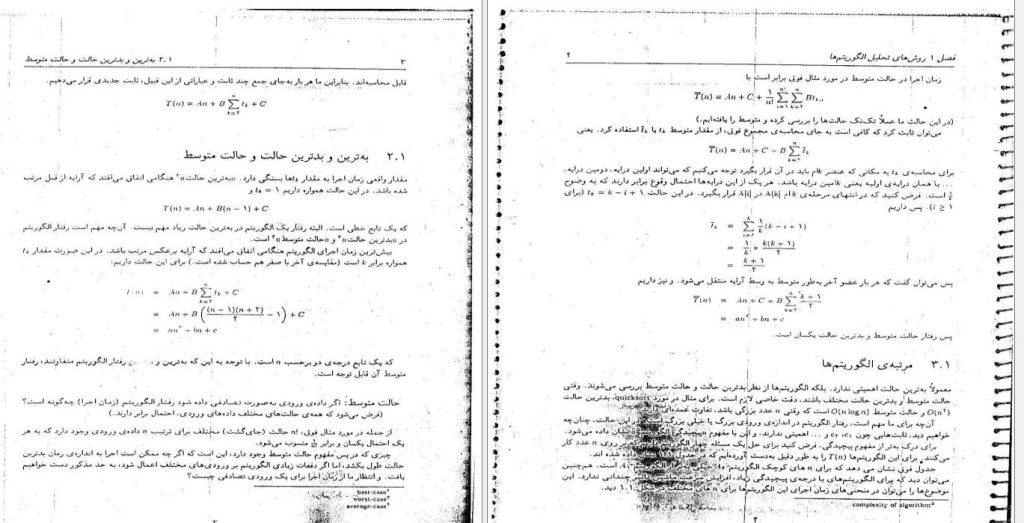 ۲.۱ به‌ترین و بدترین حالت و حالت متوسط ۳
قابل محاسبه‌اند. بنابراین ما هر بار به‌جای جمع چند ثابت و عباراتی از این قبیل، ثابت جدیدی قرار می‌دهیم.
T(n) = An + B ∑_{k=۲}^{n} t_k + C
۲.۱ به‌ترین و بدترین حالت و حالت متوسط
مقدار واقعی زمان اجرا به مقدار t_kها بستگی دارد. «به‌ترین حالت»۲ هنگامی اتفاق می‌افتد که آرایه از قبل مرتب
شده باشد. در این حالت همواره داریم t_k = ۱ و
T(n) = An + B(n − ۱) + C
که یک تابع خطی است. البته رفتار یک الگوریتم در به‌ترین حالت زیاد مهم نیست. آن‌چه مهم است رفتار الگوریتم
در «بدترین حالت»۳ و «حالت متوسط»۴ است.
بیش‌ترین زمان اجرای الگوریتم هنگامی اتفاق می‌افتد که آرایه برعکس مرتب باشد. در این صورت مقدار t_k
همواره برابر k است (مقایسه‌ی آخر با صفر هم حساب شده است.) برای این حالت داریم:
= An + B ∑_{k=۲}^{n} t_k + C
= An + B ((n − ۱)(n + ۲)/۲ − ۱) + C
= an^۲ + bn + c
که یک تابع درجه‌ی دو برحسب n است. با توجه به این که به‌ترین و رفتار الگوریتم متفاوتند، رفتار
متوسط آن قابل توجه است.
حالت متوسط: اگر داده‌ی ورودی به‌صورت تصادفی داده شود رفتار الگوریتم (زمان اجرا) چه‌گونه است؟
(فرض می‌شود که همه‌ی حالت‌های مختلف داده‌های ورودی، احتمال برابر دارند.)
از جمله در مورد مثال فوق، n! حالت (جای‌گشت) مختلف برای ترتیب n داده‌ی ورودی وجود دارد که به هر
یک احتمال یکسان و برابر ۱/n! منسوب می‌شود.
چیزی که در پس مفهوم حالت متوسط وجود دارد، این است که اگر چه ممکن است اجرا به اندازه‌ی زمان بدترین
حالت طول بکشد، اما اگر دفعات زیادی الگوریتم بر ورودی‌های مختلف اعمال شود، به حد مذکور دست خواهیم
یافت. و انتظار ما از زمان اجرا برای یک ورودی تصادفی چیست؟
best-case۲
worst-case۳
average-case۴
فصل ۱ روش‌های تحلیل الگوریتم‌ها
زمان اجرا در حالت متوسط در مورد مثال فوق برابر است با
T̄(n) = An + C + ۱/n! ∑_{i=۱}^{n!} ∑_{k=۲}^{n} Bt_{k,i}
(در این حالت ما عملاً تک‌تک حالت‌ها را بررسی کرده و متوسط را یافته‌ایم.)
می‌توان ثابت کرد که کافی است به جای محاسبه‌ی مجموع فوق، از مقدار متوسط t_k یا t̄_k استفاده کرد. یعنی
T̄(n) = An + C + B ∑_{k=۲}^{n} t̄_k
برای محاسبه‌ی t_k به مکانی که عنصر kام باید در آن قرار بگیرد توجه می‌کنیم که می‌تواند اولین درایه، دومین درایه،
... یا همان درایه‌ی اولیه یعنی kامین درایه باشد. هر یک از این درایه‌ها احتمال وقوع برابر دارند که به وضوح
۱/k است. فرض کنید که در انتهای مرحله‌ی kام A[k] در A[i] قرار بگیرد. در این حالت t_k = k − i + ۱ (برای
i ≥ ۱). پس داریم
t̄_k = ∑_{i=۱}^{k} ۱/k (k − i + ۱)
= ۱/k × k(k + ۱)/۲
= (k + ۱)/۲
پس می‌توان گفت که هر بار عضو آخر به‌طور متوسط به وسط آرایه منتقل می‌شود. و نیز داریم
T̄(n) = An + C + B ∑_{k=۲}^{n} (k + ۱)/۲
= an^۲ + bn + c
پس رفتار حالت متوسط و بدترین حالت یکسان است.
۳.۱ مرتبه‌ی الگوریتم‌ها
معمولاً به‌ترین حالت اهمیتی ندارد. بلکه الگوریتم‌ها از نظر بدترین حالت و حالت متوسط بررسی می‌شوند. وقتی
حالت متوسط و بدترین حالت مختلف باشند، دقت خاصی لازم است. برای مثال در مورد quicksort، بدترین حالت
O(n^۲) و حالت متوسط O(n log n) است که وقتی n عدد بزرگی باشد، تفاوت عمده‌ای
آن‌چه برای ما مهم است، رفتار الگوریتم در اندازه‌ی ورودی بزرگ یا خیلی بزرگ این حالت، چنان‌چه
خواهیم دید، ثابت‌هایی چون c₁، c₂ و ... اهمیتی ندارند، و این با مفهوم پیچیدگی نشان داده می‌شود.
برای درک به‌تر از مفهوم پیچیدگی، فرض کنید برای حل یک مسئله چهار الگوریتم بر روی n عدد کار
می‌کنند. برای این الگوریتم‌ها T(n) را به طور دقیق به‌دست آورده‌ایم که در جدول شده اند.
جدول فوق نشان می دهد که برای n های کوچک الگوریتم است. هم‌چنین
می‌توان دید که برای الگوریتم‌های با درجه‌ی پیچیدگی زیاد، افزایش چندانی ندارد. این
موضوع‌ها را می‌توان در منحنی‌های زمان اجرای این الگوریتم‌ها برای n های مختلف ۱.۱ دید.
complexity of algorithm۵